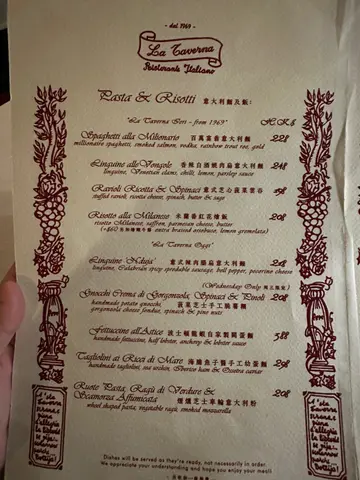 - dal 1969 -
La Taverna
Ristorante Italiano
Pasta & Risotti 意大利麵及飯:
"La Taverna Ieri - from 1969" HK$
Spaghetti alla Milionario 百萬富翁意大利麵 228
millionaire spaghetti, smoked salmon, vodka, rainbow trout roe, gold
Linguine alle Vongole 香辣白酒蜆肉扁意大利麵 248
linguine, Venetian clams, chilli, lemon, parsley sauce
Ravioli Ricotta & Spinaci 意式芝心菠菜雲吞 198
stuffed ravioli, ricotta cheese, spinach, butter & sage
Risotto alla Milanese 米蘭番紅花燴飯 208
risotto Milanese, saffron, parmesan cheese, butter
(+$60 extra braised ossobuco, lemon gremolata)
"La Taverna Oggi"
Linguine N'duja 意式辣肉腸扁意大利麵 218
linguine, Calabrian spicy spreadable sausage, bell pepper, pecorino cheese
(Wednesday Only 周三限定)
Gnocchi Crema di Gorgonzola, Spinaci & Pinoli 208
handmade potato gnocchi, 菠菜芝士手工脆薯糰
gorgonzola cheese fondue, spinach & pine nuts
Fettuccine all'Astice 波士頓龍蝦自家製闊蛋麵 388
handmade fettuccine, half lobster, anchovy & lobster sauce
Tagliolini ai Ricci di Mare 海膽魚子醬手工幼蛋麵 298
handmade tagliolini, sea urchin, Iberico ham & Oscietra caviar
Ruote Pasta, Ragù di Verdure & 208
Scamorza Affumicata 煙燻芝士車輪意大利粉
wheel shaped pasta, vegetable ragù, smoked mozzarella
Dishes will be served as they're ready, not necessarily in order.
We appreciate your understanding and hope you enjoy your meal!